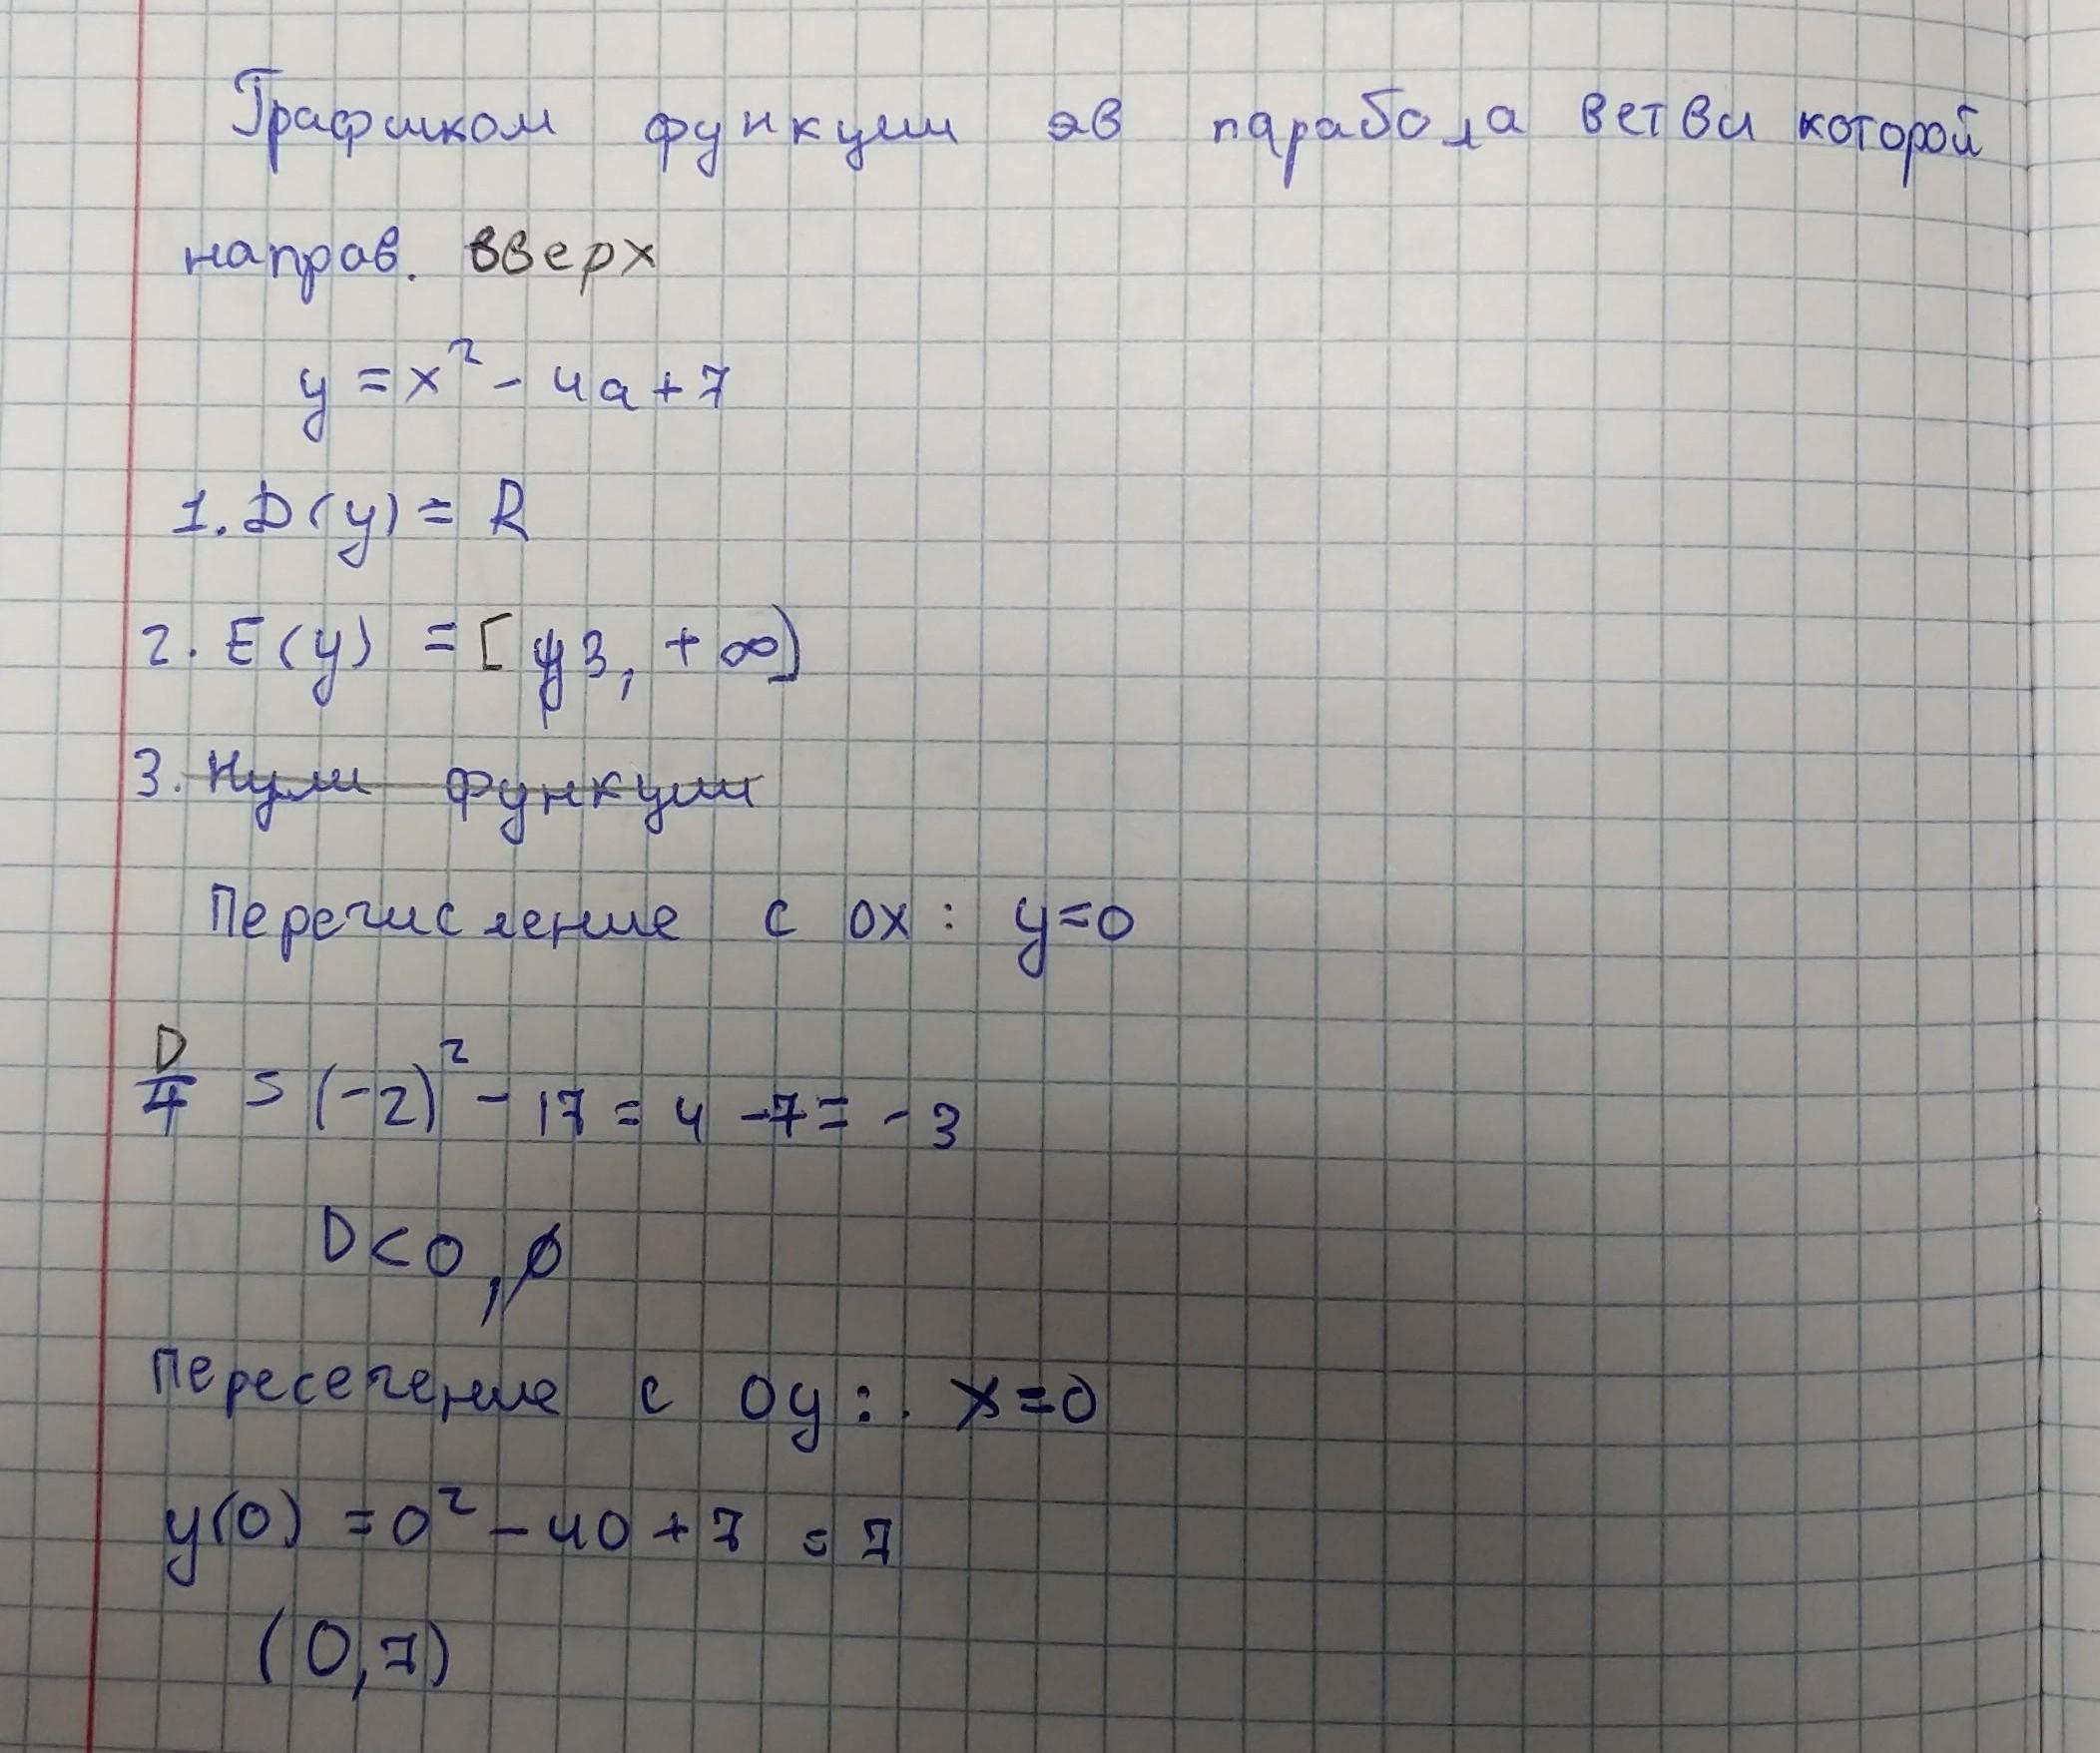 Графиком функции яв парабола ветви которой
направ. вверх
y = x² - 4a + 7
1. D(y) = R
2. E(y) = [y3, +∞)
3. Нули функции
Перечисление с ox: y=0
D/4 = (-2)² - 17 = 4 - 7 = - 3
D < 0, ∅
Пересечение с oy: x=0
y(0) = 0² - 40 + 7 = 7
(0,7)